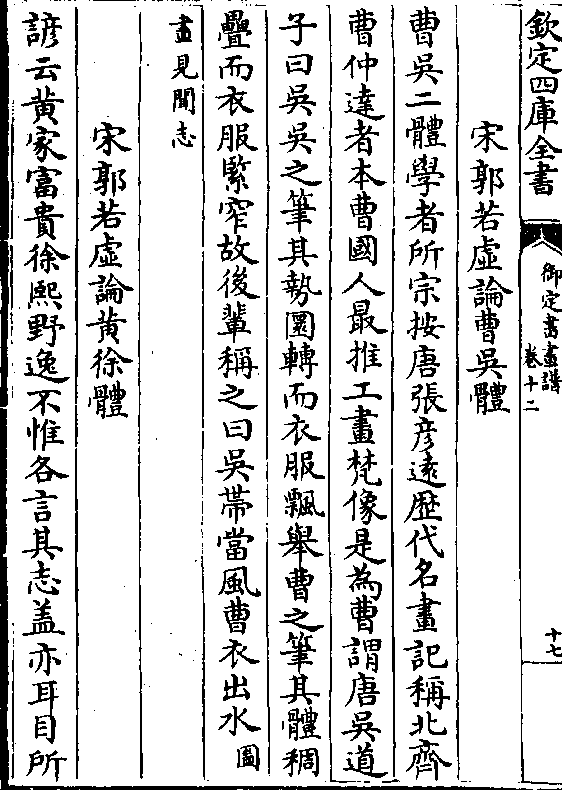 欽定四庫全書
御定書畫譜
卷十二
十七
宋郭若虛論曹吳體
曹吳二體學者所宗按唐張彦遠歴代名畫記稱北齊
曹仲達者本曹國人最推工畫梵像是為曹謂唐吳道
子曰吳吳之筆其勢圜轉而衣服飄舉曹之筆其體稠
疊而衣服緊窄故後輩稱之曰吳帶當風曹衣出水圖
畫見聞志
宋郭若虛論黄徐體
諺云黄家富貴徐熙野逸不惟各言其志盖亦耳目所